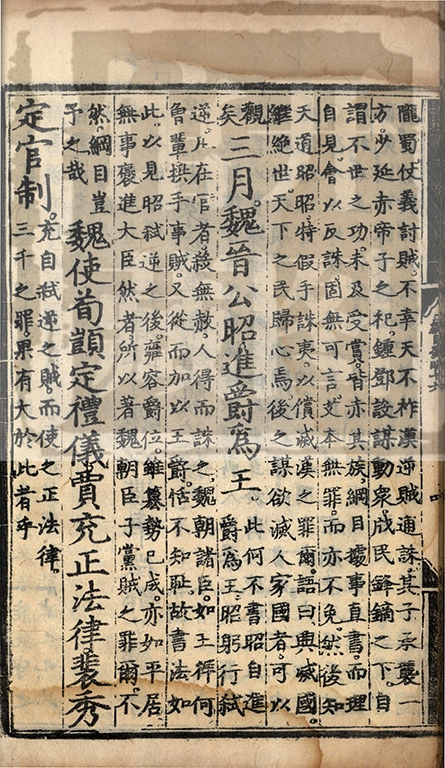 隴蜀仗義討賊不幸天不祚漢逆賊逋誅其子承襲一
方少延赤帝子之祀鍾鄧設謀動衆戕民鋒鏑之下自
謂不世之功未及受賞皆赤其族綱目據事直書而理
自見會以反誅固無可言艾本無罪而亦不免然後知
天道昭昭特假手誅夷以償滅漢之罪爾語曰興滅國
繼絶世天下之民歸心焉後之謀欲滅人家國者可以
觀
矣
三月魏晉公昭進爵爲王
此何不書昭自進
爵爲王昭躬行弑
逆凡在官者殺無赦人得而誅之魏朝諸臣如王祥何
魯輩拱手事賊又從而加以王爵恬不知恥故書法如
此以見昭弑逆之後雍容爵位雖篡勢已成亦如平居
無事褒進大臣然者所以著魏朝臣子黨賊之罪爾不
然綱目豈
予之哉
魏使荀顗定禮儀賈充正法律裴秀
定官制
充自弑逆之賊而使之正法律
三千之罪果有大於此者乎